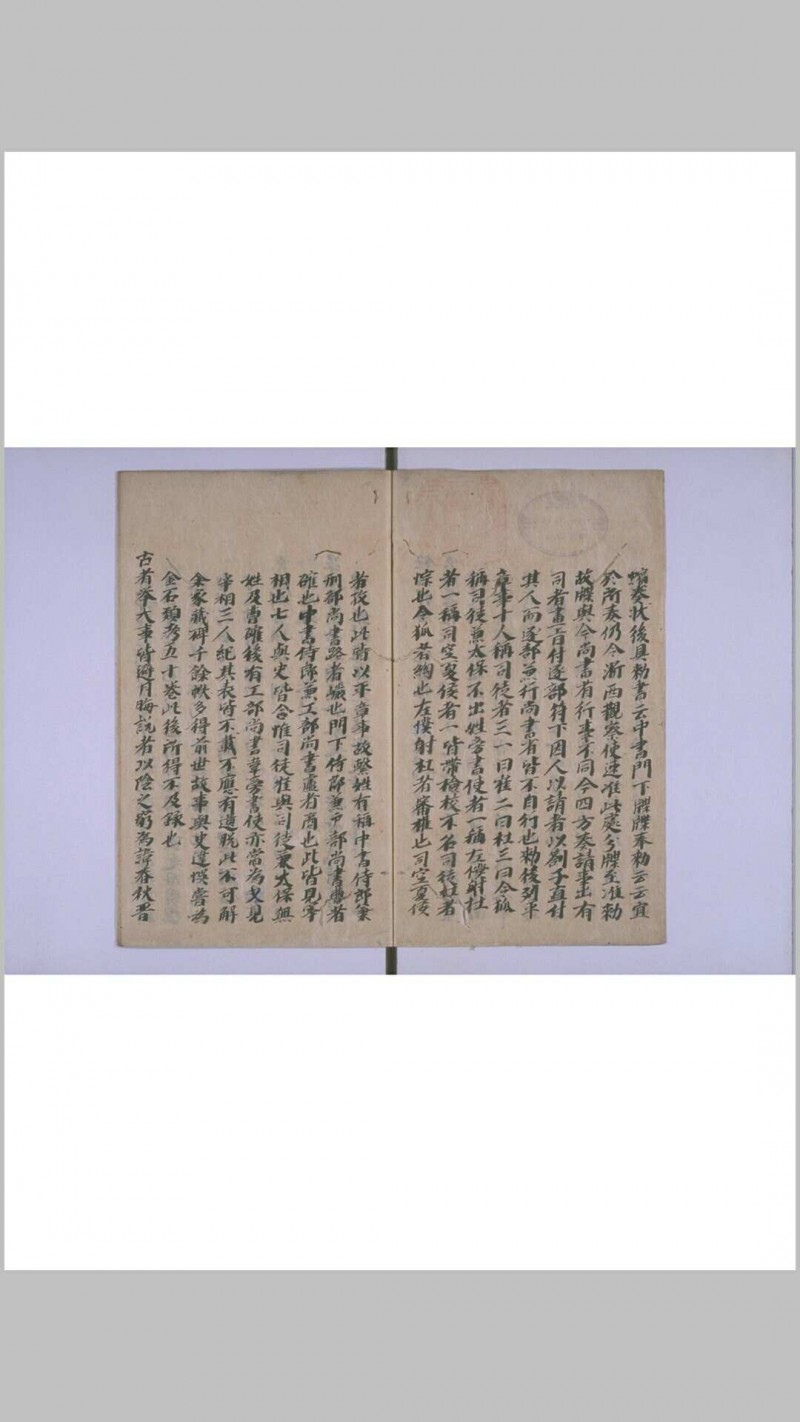 缩奏狀後具勅書云中書門下牒牒奉勅云云宜
於所奏仍令浙西觀察使速准此處分牒至准勅
故牒與今尚書省行事不同今四方奏請事出有
司者畫旨付逐部符下因人以請者以劄子直付
其人而逐部兼行尚書省皆不自行也勅後列平
章事十人稱司徒者三一曰崔二曰杜三曰令狐
稱司徒兼太保不出姓旁書使者一稱左僕射杜
者一稱司空夏侯者一皆帶檢校不名司徒杜者
悰也令狐者綯也左僕射杜者審權也司空夏侯
者孜也此時以平章事故繫姓有稱中書侍郎兼
刑部尚書路者巖也門下侍郎兼戶部尚書曹者
確也中書侍郎兼工部尚書盧者商也此皆見宰
相也七人與史皆合惟司徒崔與司徒兼太保無
姓及曹確後有工部尚書韋旁書使亦當為見
宰相三人紀其表皆不載不應有遺脫此不可解
余家藏碑千餘帙多得前世故事與史違悞嘗為
金石類考五十卷此後所得不及錄也
古者舉大事皆避月晦說者以陰之窮為諱春秋晋